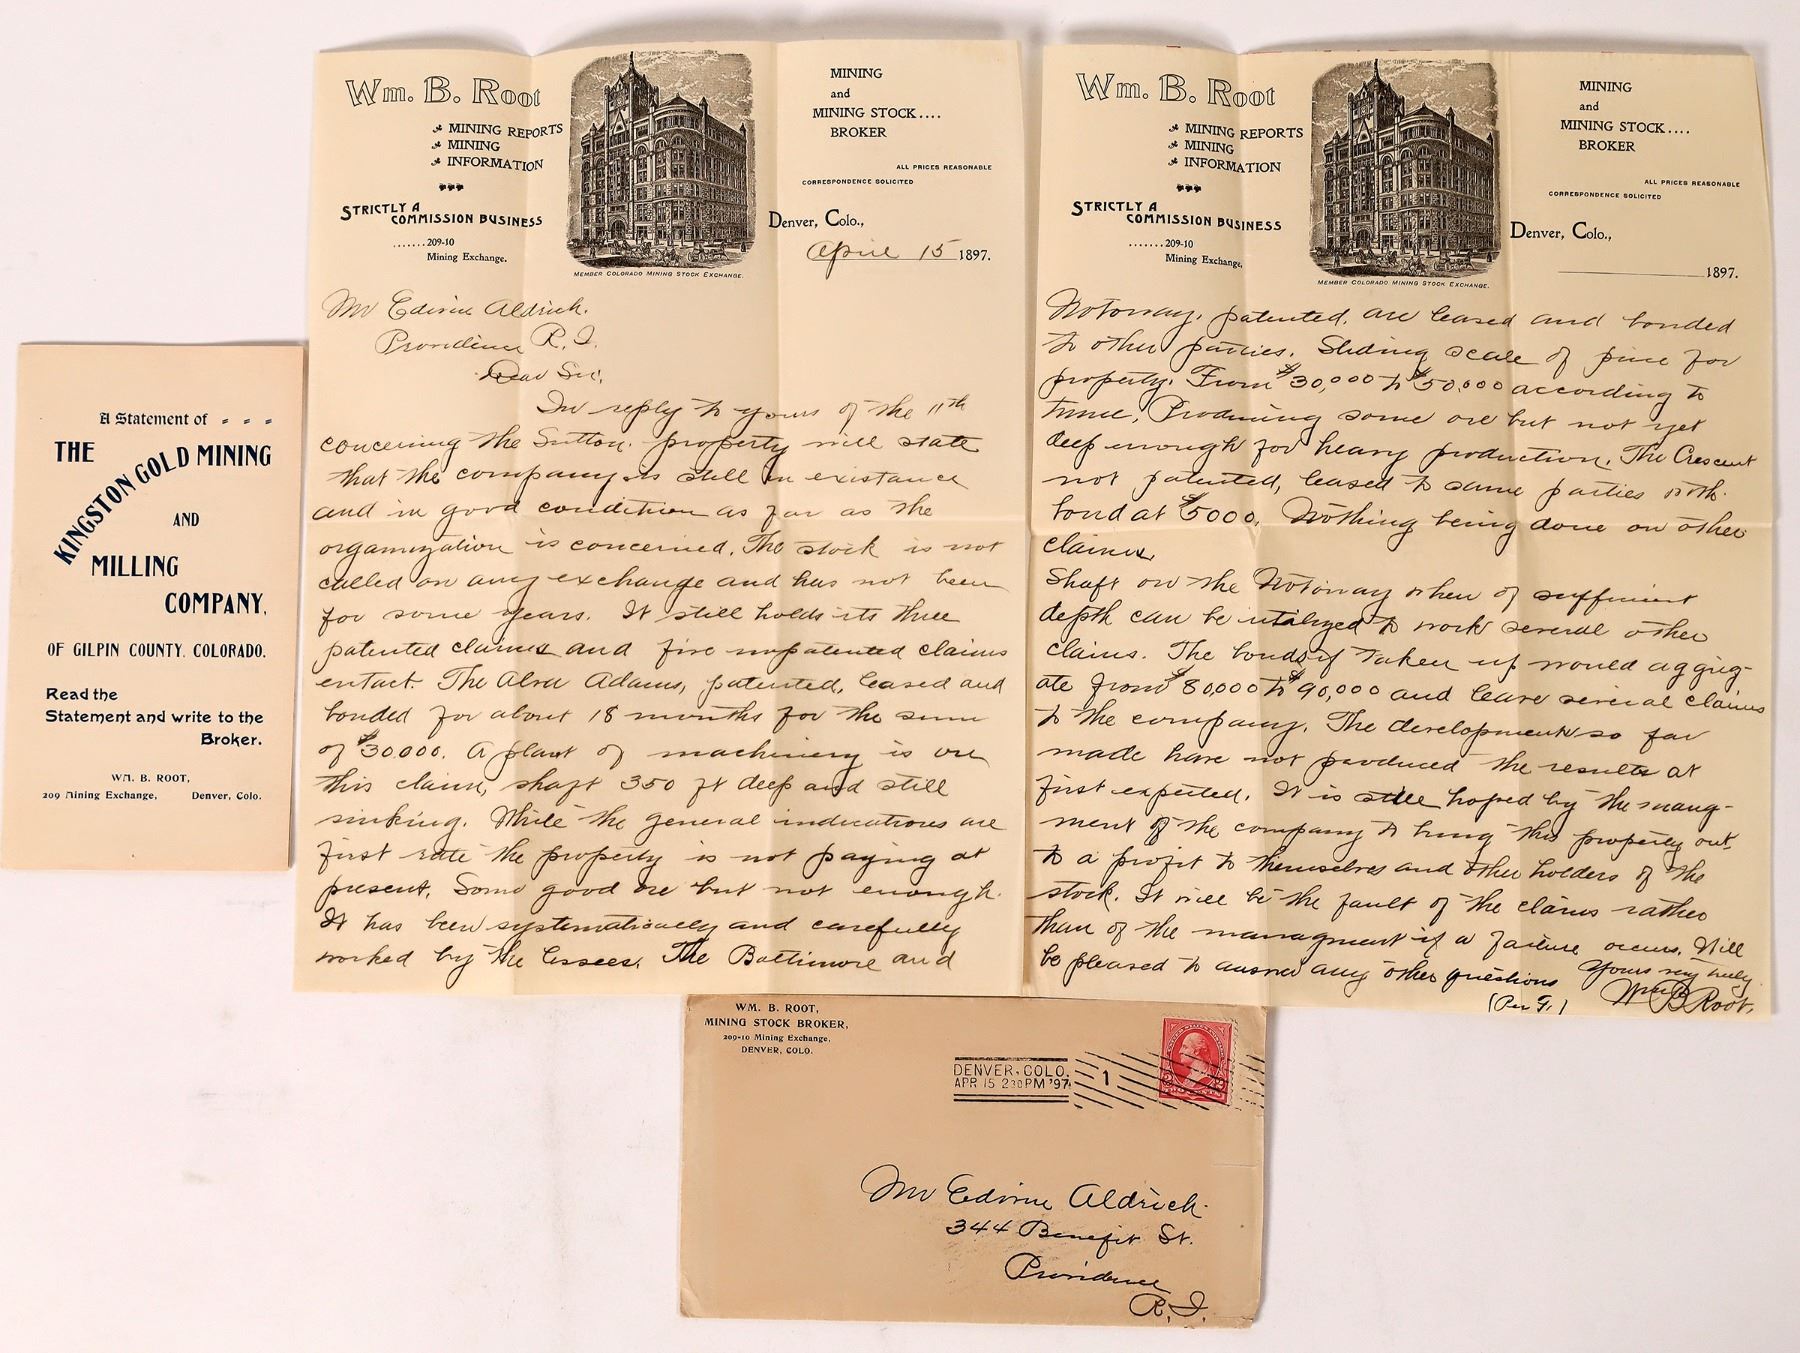 A Statement of - - -
THE
KINGSTON GOLD MINING
AND
MILLING
COMPANY,
OF GILPIN COUNTY, COLORADO.
Read the
Statement and write to the
Broker.
WM. B. ROOT,
209 Mining Exchange, Denver, Colo.
Wm. B. Root
MINING REPORTS
MINING
INFORMATION
STRICTLY A
COMMISSION BUSINESS
.......209-10
Mining Exchange.
MEMBER COLORADO MINING STOCK EXCHANGE.
MINING
and
MINING STOCK....
BROKER
ALL PRICES REASONABLE
CORRESPONDENCE SOLICITED
Denver, Colo.,
April 15 1897.
Mr Edwin Aldrich.
Providence R. I.
Dear Sir,
In reply to yours of the 11th
concerning the Sutton property will state
that the company is still in existance
and in good condition as far as the
organization is concerned. The stock is not
called on any exchange and has not been
for some years. It still holds its three
patented claims and five unpatented claims
entact. The Alva Adams, patented, leased and
bonded for about 18 months for the sum
of $30.000. A plant of machinery is on
this claim, shaft 350 ft deep and still
sinking. While the general indications are
first rate the property is not paying at
present. Some good ore but not enough.
It has been systematically and carefully
worked by the lessees. The Baltimore and
Wm. B. Root
MINING REPORTS
MINING
INFORMATION
STRICTLY A
COMMISSION BUSINESS
.......209-10
Mining Exchange.
MEMBER COLORADO MINING STOCK EXCHANGE.
MINING
and
MINING STOCK....
BROKER
ALL PRICES REASONABLE
CORRESPONDENCE SOLICITED
Denver, Colo.,
1897.
Notoway, patented, are leased and bonded
to other parties. Sliding scale of price for
property. From $30,000 to $50,000 according to
time. Producing some ore but not yet
deep enough for heavy production. The Crescent
not patented, leased to same parties with
bond at $5000. Nothing being done on other
claims.
Shaft on the Notoway when of sufficient
depth can be utalized to work several other
claims. The bonds if taken up would aggreg-
ate from $80,000 to $90,000 and leave several claims
to the company. The development so far
made have not produced the results at
first expected. It is still hoped by the manag-
ment of the company to bring this property out
to a profit to themselves and other holders of the
stock. It will be the fault of the claims rather
than of the managment if a failure occurs. Will
be pleased to answer any other questions
Yours very truly
Wm B Root.
(Per F.)
WM. B. ROOT,
MINING STOCK BROKER,
209-10 Mining Exchange,
DENVER, COLO.
DENVER, COLO.
APR 15 230PM '97
1
TWO CENTS
Mr Edwin Aldrich.
344 Benefit St.
Providence
R. I.